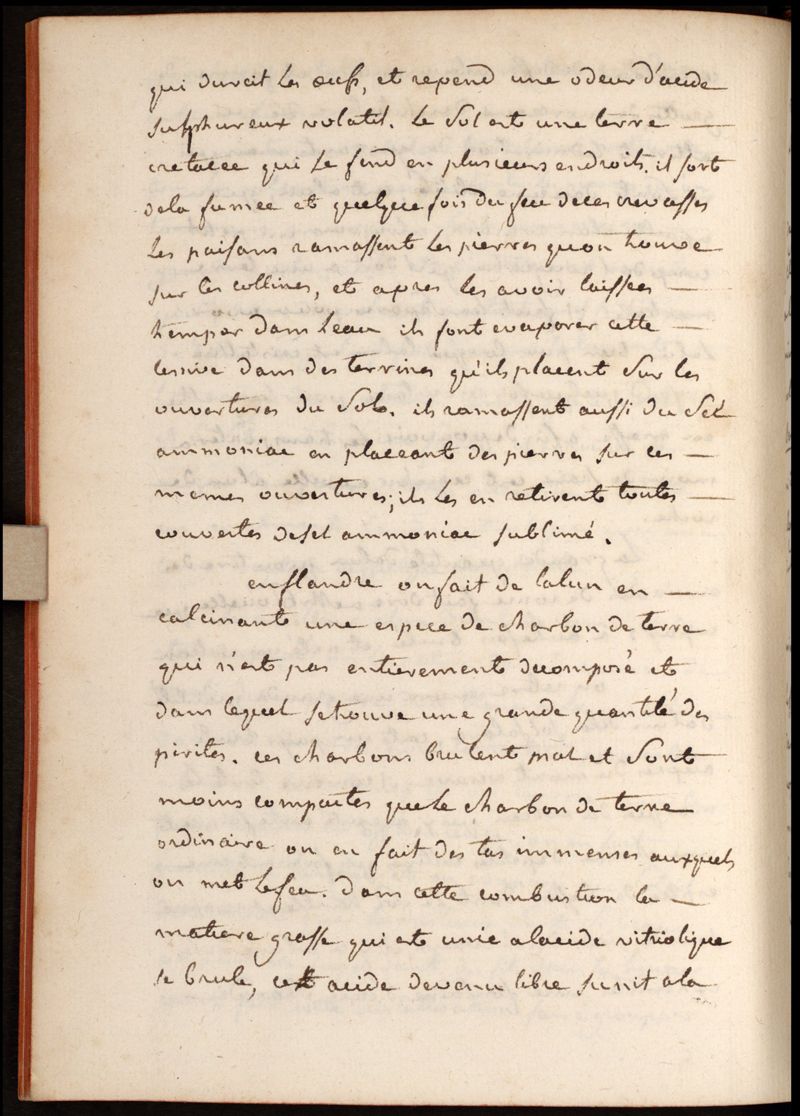 qui durcit les œufs, et repend une odeur d'acide
sulphureux volatil. Le Sol est une terre —
cretacee qui se fend en plusieurs endroits. il sort
dela fumee et quelque fois du feu deces crevasses
Les paisans ramassent les pierres qu'on trouve
sur les collines, et apres les avoir laissees —
tremper dans leau ils font evaporer cette —
lessive dans des terrines qu'ils placent sur les
ouvertures du Sol. ils ramassent aussi du Sel
ammoniac en placeant des pierres sur ces —
memes ouvertures; ils les en retirent toutes —
couvertes desel ammoniac sublimé.
enflandre on fait de lalun en —
calcinant une espece de charbon de terre
qui n'est pas entierement decomposé et
dans lequel setrouve une grande quantité des
pirites. ces charbons brulent mal et sont
moins compactes quele charbon de terre
ordinaire on en fait des tas immenses auxquels
on met lefeu. Dans cette combustion la —
matiere grasse qui est unie alacide vitriolique
se brule, cet acide devenu libre sunit ala